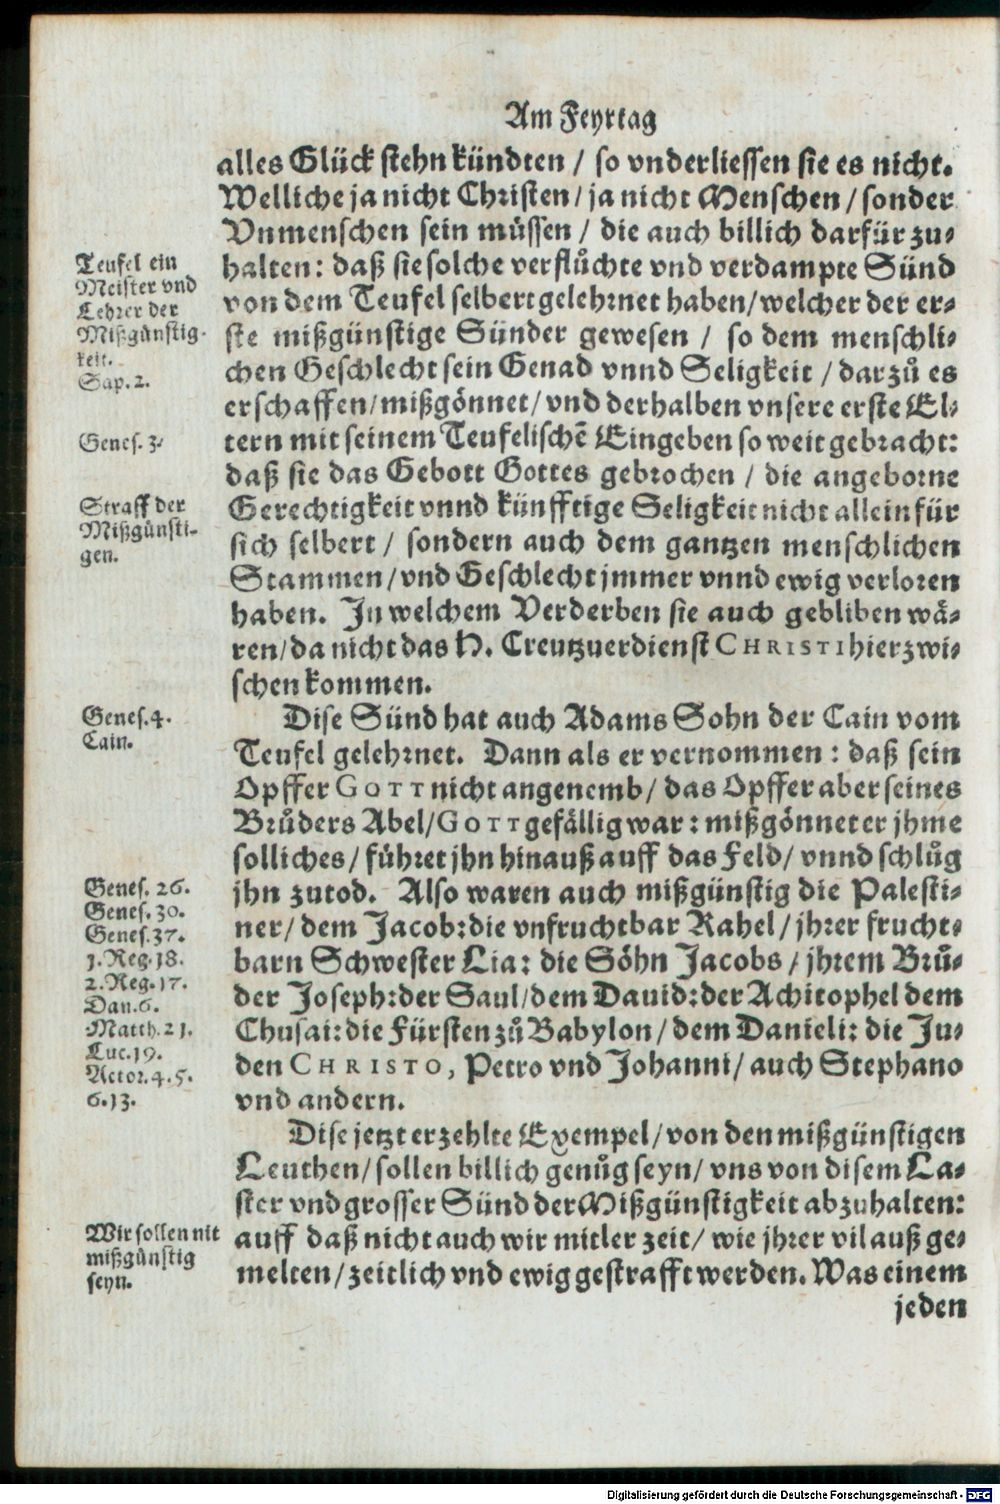 Am Feyrtag
alles Glück stehn kündten / so vnderliessen sie es nicht.
Welliche ja nicht Christen / ja nicht Menschen / sonder
Vnmenschen sein müssen / die auch billich darfür zu-
halten: daß sie solche verflůchte vnd verdampte Sünd
von dem Teufel selbert gelehrnet haben / welcher der er-
ste mißgünstige Sünder gewesen / so dem menschli-
chen Geschlecht sein Genad vnnd Seligkeit / darzů es
erschaffen / mißgönnet / vnd derhalben vnsere erste El-
tern mit seinem Teufelischẽ Eingeben so weit gebracht:
daß sie das Gebott Gottes gebrochen / die angeborne
Gerechtigkeit vnnd künfftige Seligkeit nicht allein für
sich selbert / sondern auch dem gantzen menschlichen
Stammen / vnd Geschlecht jmmer vnnd ewig verloren
haben. In welchem Verderben sie auch gebliben wä-
ren / da nicht das H. Creutzuerdienst CHRISTI hierzwi-
schen kommen.
Dise Sünd hat auch Adams Sohn der Cain vom
Teufel gelehrnet. Dann als er vernommen: daß sein
Opffer GOTT nicht angenemb / das Opffer aber seines
Brůders Abel / GOTT gefällig war: mißgönnet er jhme
solliches / führet jhn hinauß auff das Feld / vnnd schlůg
jhn zutod. Also waren auch mißgünstig die Palesti-
ner / dem Jacob: die vnfruchtbar Rahel / jhrer frucht-
barn Schwester Lia: die Söhn Jacobs / jhrem Brů-
der Joseph: der Saul / dem Dauid: der Achitophel dem
Chusai: die Fürsten zů Babylon / dem Danieli: die Ju-
den CHRISTO, Petro vnd Johanni / auch Stephano
vnd andern.
Dise jetzt erzehlte Exempel / von den mißgünstigen
Leuthen / sollen billich genůg seyn / vns von disem La-
ster vnd grosser Sünd der Mißgünstigkeit abzuhalten:
auff daß nicht auch wir mitler zeit / wie jhrer vil auß ge-
melten / zeitlich vnd ewig gestrafft werden. Was einem
jeden
Teufel ein
Meister vnd
Lehrer der
Mißgünstig-
keit.
Sap. 2.
Genes. 3.
Straff der
Mißgünsti-
gen.
Genes. 4.
Cain.
Genes. 26.
Genes. 30.
Genes. 37.
1. Reg. 18.
2. Reg. 17.
Dan. 6.
Matth. 21.
Luc. 19.
Actor. 4. 5.
6. 13.
Wir sollen nit
mißgünstig
seyn.
Digitalisierung gefördert durch die Deutsche Forschungsgemeinschaft - DFG